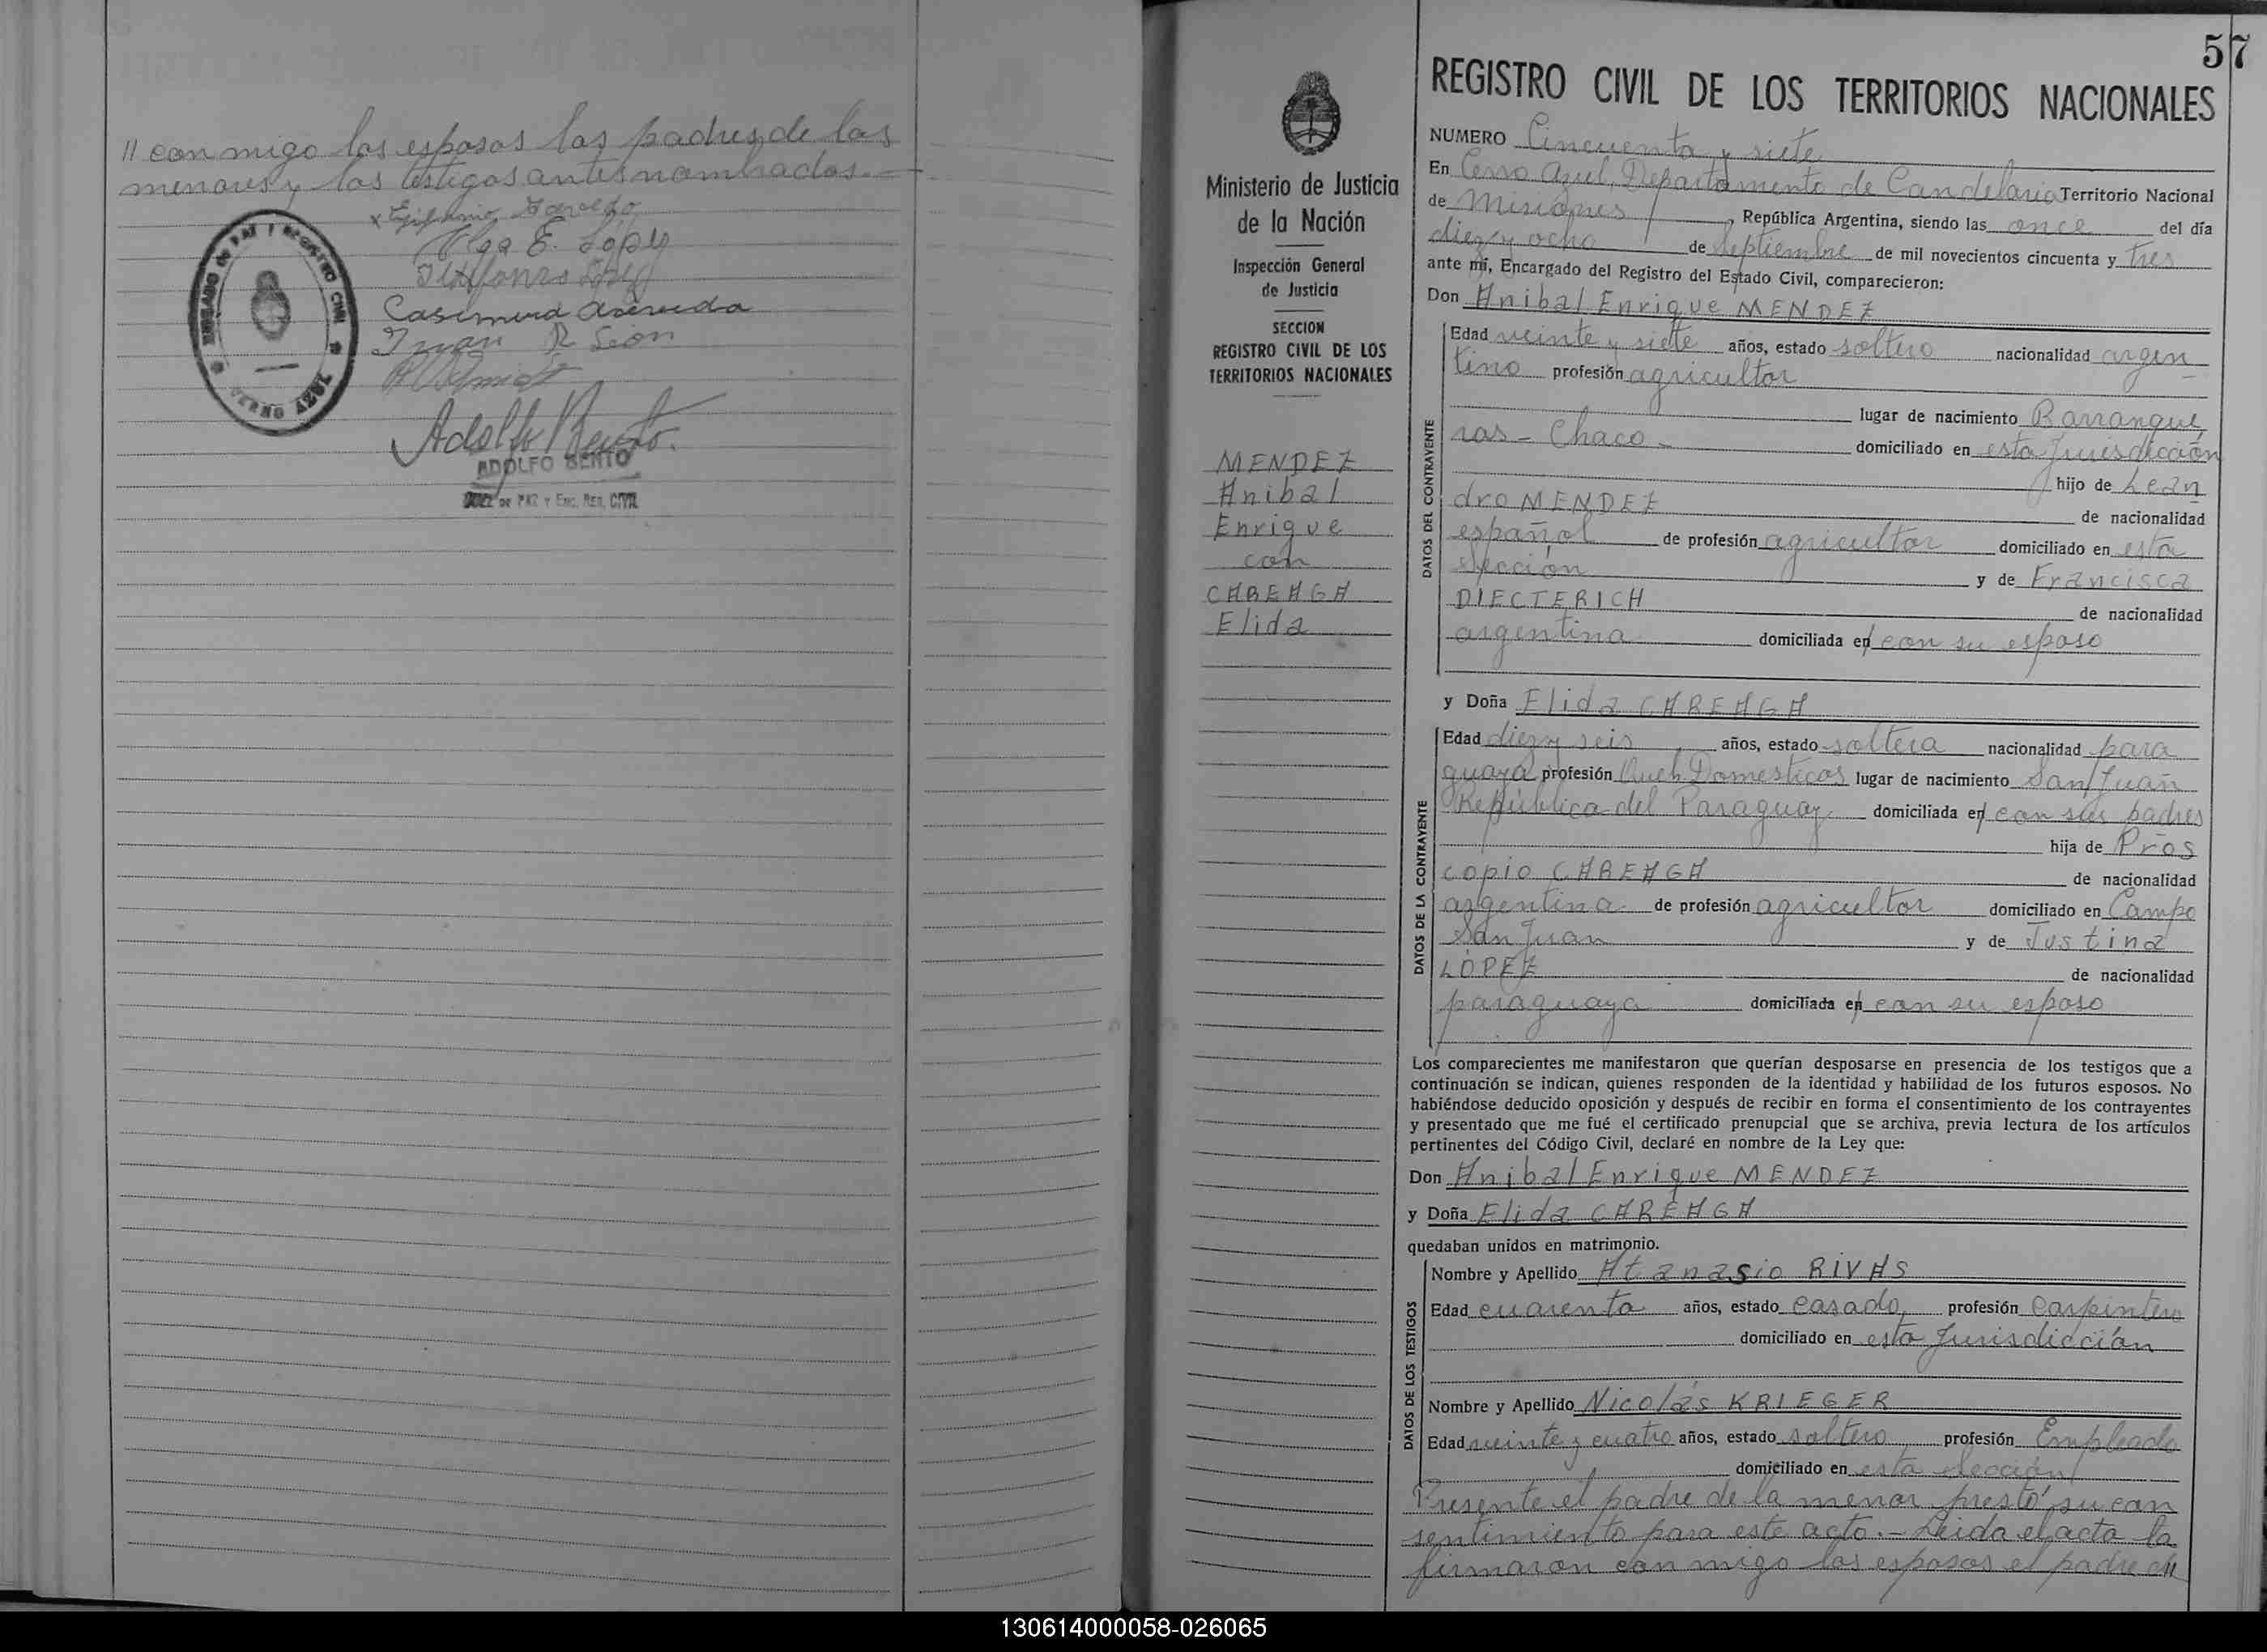 // con migo los esposos los padres de los
menores y los testigos antes nombrados.-
x Epifanio Acevedo
Olga E. López
Ildefonso López
Casimira Acevedo
Juan R León
Adolfo Bento.
ADOLFO BENTO
JUEZ DE PAZ Y ENC. REG. CIVIL
JUZGADO de PAZ Y REGISTRO CIVIL
57
Ministerio de Justicia
de la Nación
Inspección General
de Justicia
SECCION
REGISTRO CIVIL DE LOS
TERRITORIOS NACIONALES
MENDEZ
Anibal
Enrique
con
CABEAGA
Elida
REGISTRO CIVIL DE LOS TERRITORIOS NACIONALES
NUMERO Cincuenta y siete
En Cerro Azul, Departamento de Candelaria Territorio Nacional
de Misiones, República Argentina, siendo las once del día
diez y ocho de Septiembre de mil novecientos cincuenta y tres
ante mí, Encargado del Registro del Estado Civil, comparecieron:
Don Anibal Enrique MENDEZ
DATOS DEL CONTRAYENTE
Edad veinte y siete años, estado soltero nacionalidad argen
tino profesión agricultor
lugar de nacimiento Barranque
ras - Chaco - domiciliado en esta Jurisdicción
hijo de Lean
dro MENDEZ de nacionalidad
español de profesión agricultor domiciliado en esta
sección y de Francisca
DIECTERICH de nacionalidad
argentina domiciliada en con su esposo
y Doña Elida CABEAGA
DATOS DE LA CONTRAYENTE
Edad diez y seis años, estado soltera nacionalidad para
guaya profesión Queh. Domesticos lugar de nacimiento San Juan
República del Paraguay domiciliada en con sus padres
hija de Pros
copio CABEAGA de nacionalidad
argentina de profesión agricultor domiciliado en Campo
San Juan y de Justina
LÓPEZ de nacionalidad
paraguaya domiciliada en con su esposo
Los comparecientes me manifestaron que querían desposarse en presencia de los testigos que a
continuación se indican, quienes responden de la identidad y habilidad de los futuros esposos. No
habiéndose deducido oposición y después de recibir en forma el consentimiento de los contrayentes
y presentado que me fué el certificado prenupcial que se archiva, previa lectura de los artículos
pertinentes del Código Civil, declaré en nombre de la Ley que:
Don Anibal Enrique MENDEZ
y Doña Elida CABEAGA
quedaban unidos en matrimonio.
DATOS DE LOS TESTIGOS
Nombre y Apellido Atanasio RIVAS
Edad cuarenta años, estado casado, profesión Carpintero
domiciliado en esta Jurisdicción
Nombre y Apellido Nicolás KRIEGER
Edad veinte y cuatro años, estado soltero, profesión Empleado
domiciliado en esta sección
Presente el padre de la menor prestó su con
sentimiento para este acto.- Leida el acta la
firmaron con migo los esposos el padre de//
130614000058-026065